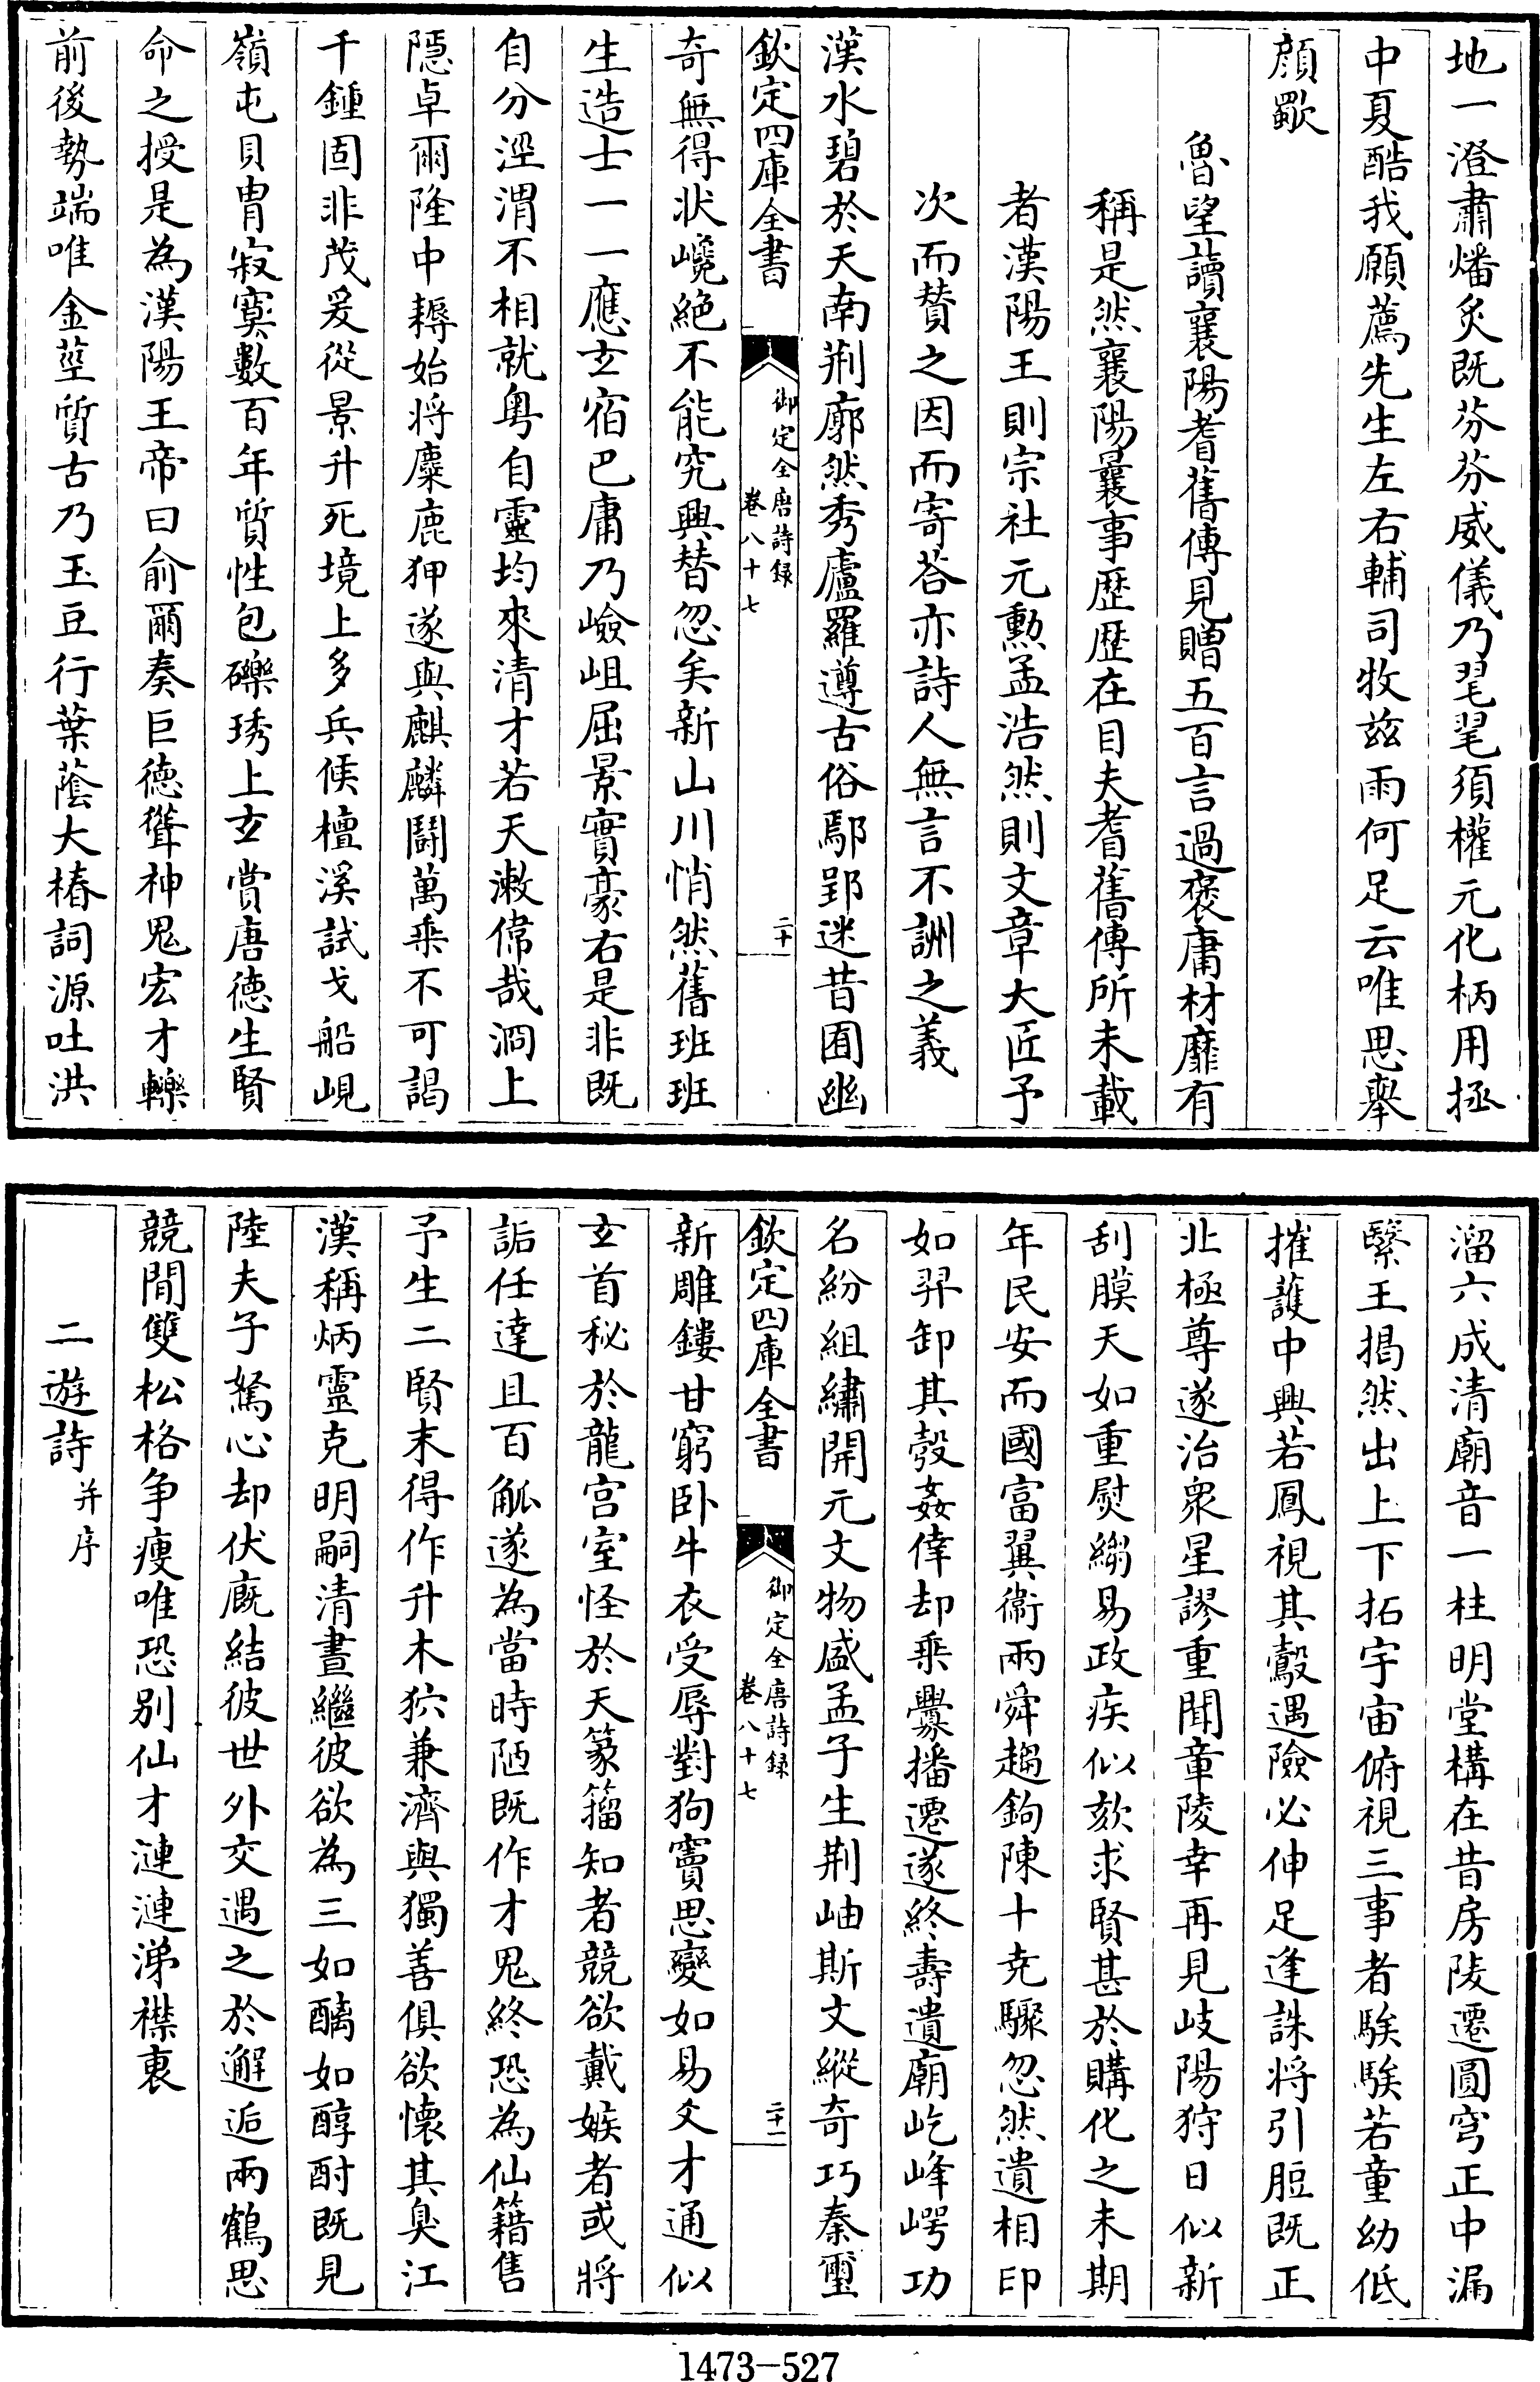 地一澄肅燔炙既芬芬威儀乃毣毣須權元化柄用拯
中夏酷我願薦先生左右輔司牧兹雨何足云唯思舉
顔歜
魯望讀襄陽耆舊傳見贈五百言過褒庸材靡有
稱是然襄陽曩事歴歴在目夫耆舊傳所未載
者漢陽王則宗社元勲孟浩然則文章大匠予
次而贊之因而寄荅亦詩人無言不詶之義
漢水碧於天南荆廓然秀廬羅遵古俗鄢郢迷昔囿幽
欽定四庫全書
御定全唐詩録
卷八十七
二十
奇無得状巉絶不能究興替忽矣新山川悄然舊班班
生造士一一應𤣥宿巴庸乃嶮岨屈景實豪右是非既
自分涇渭不相就粤自靈均來清才若天漱偉哉泂上
隠卓爾隆中耨始将麋鹿狎遂與麒麟鬬萬乘不可謁
千鍾固非茂爰從景升死境上多兵候檀溪試戈船峴
嶺屯貝胄寂寞數百年質性包礫琇上𤣥賞唐德生賢
命之授是為漢陽王帝曰俞爾奏巨德聳神鬼宏才轢
前後勢端唯金莖質古乃玉豆行葉䕃大椿詞源吐洪
溜六成清廟音一柱明堂構在昔房陵遷圓穹正中漏
繄王揭然出上下拓宇宙俯視三事者騃騃若童幼低
摧護中興若鳳視其鷇遇險必伸足逢誅将引脰既正
北極尊遂治衆星謬重聞章陵幸再見岐陽狩日似新
刮膜天如重熨縐易政疾似欬求賢甚於購化之未期
年民安而國富翼衛兩舜趨鉤陳十尭驟忽然遺相印
如羿卸其彀姦倖却乗釁播遷遂終壽遺廟屹峰崿功
名紛組繡開元文物盛孟子生荆岫斯文縱奇巧秦璽
欽定四庫全書
御定全唐詩録
卷八十七
二十一
新雕鏤甘窮卧牛衣受辱對狗竇思變如易爻才通似
𤣥首秘於龍宫室怪於天篆籀知者競欲戴嫉者或將
詬任達且百觚遂為當時陋既作才鬼終恐為仙籍售
予生二賢末得作升木狖兼濟與獨善俱欲懐其臭江
漢稱炳靈克明嗣清晝繼彼欲為三如醨如醇酎既見
陸夫子駑心却伏廐結彼世外交遇之於邂逅兩鶴思
競閒雙松格争瘦唯恐别仙才漣漣涕襟褏
二遊詩并序
1473-527